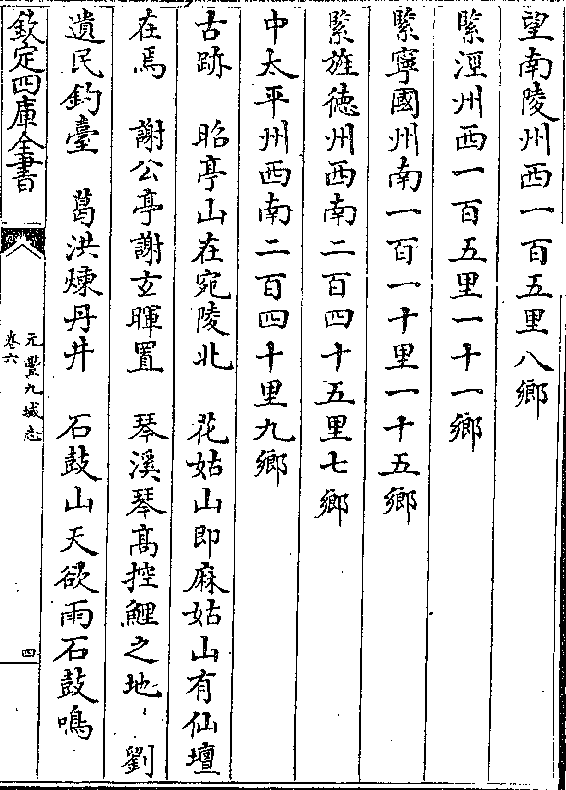 望南陵州西一百五里八鄉
緊涇州西一百五里一十一鄉
緊寧國州南一百一十里一十五鄉
緊旌徳州西南二百四十五里七鄉
中太平州西南二百四十里九鄉
古跡　昭亭山在宛陵北　花姑山即麻姑山有仙壇
在焉　謝公亭謝玄暉置　琴溪琴髙控鯉之地　劉
遺民釣臺　葛洪煉丹井　石鼓山天欲雨石鼓鳴
欽定四庫全書
元豐九域志
卷六
四